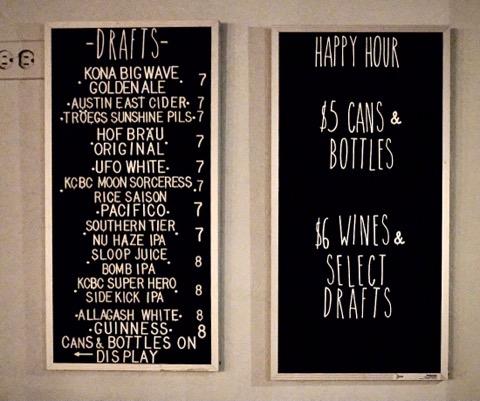 -DRAFTS-
KONA BIG WAVE
GOLDEN ALE 7
·AUSTIN EAST CIDER· 7
·TRÖEGS SUNSHINE PILS· 7
HOF BRÄU
·ORIGINAL· 7
·UFO WHITE· 7
KCBC MOON SORCERESS
RICE SAISON 7
·PACIFICO· 7
SOUTHERN TIER
NU HAZE IPA 7
SLOOP JUICE
BOMB IPA 8
KCBC SUPER HERO
SIDE KICK IPA 8
·ALLAGASH WHITE· 8
·GUINNESS· 8
CANS & BOTTLES ON
← DISPLAY
HAPPY HOUR
$5 CANS &
BOTTLES
$6 WINES &
SELECT
DRAFTS